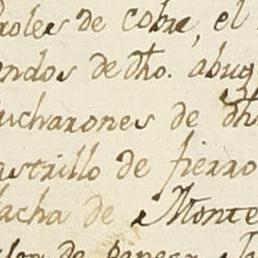 roles de cobre, el
endos de dho. abuj
ucharones de dh
astrillo de fierro
lacha de Monte
de